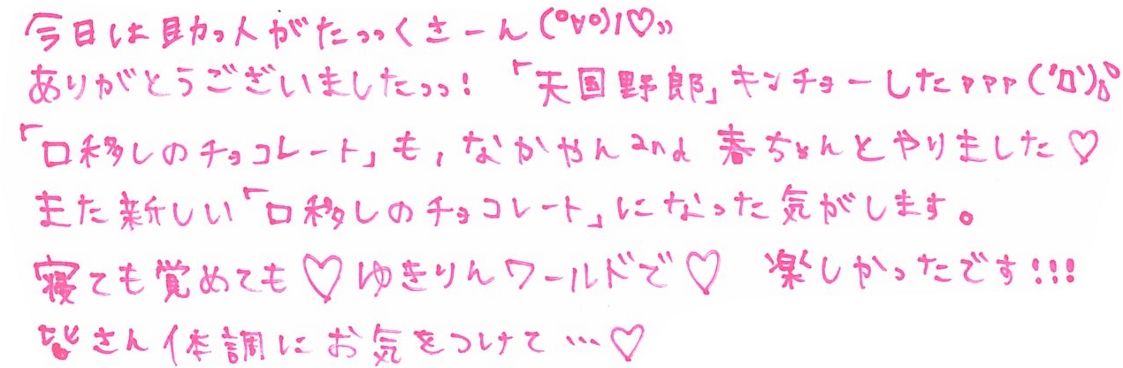 今日は助っ人がたっっくさーん(°∀°)ノ♡››
ありがとうございましたっっ!「天国野郎」キンチョーしたァァァ(´ロ`)
「口移しのチョコレート」も,なかやんand春ちゃんとやりました♡
また新しい「口移しのチョコレート」になった気がします。
寝ても覚めても♡ゆきりんワールドで♡ 楽しかったです!!!
皆さん体調にお気をつけて…♡